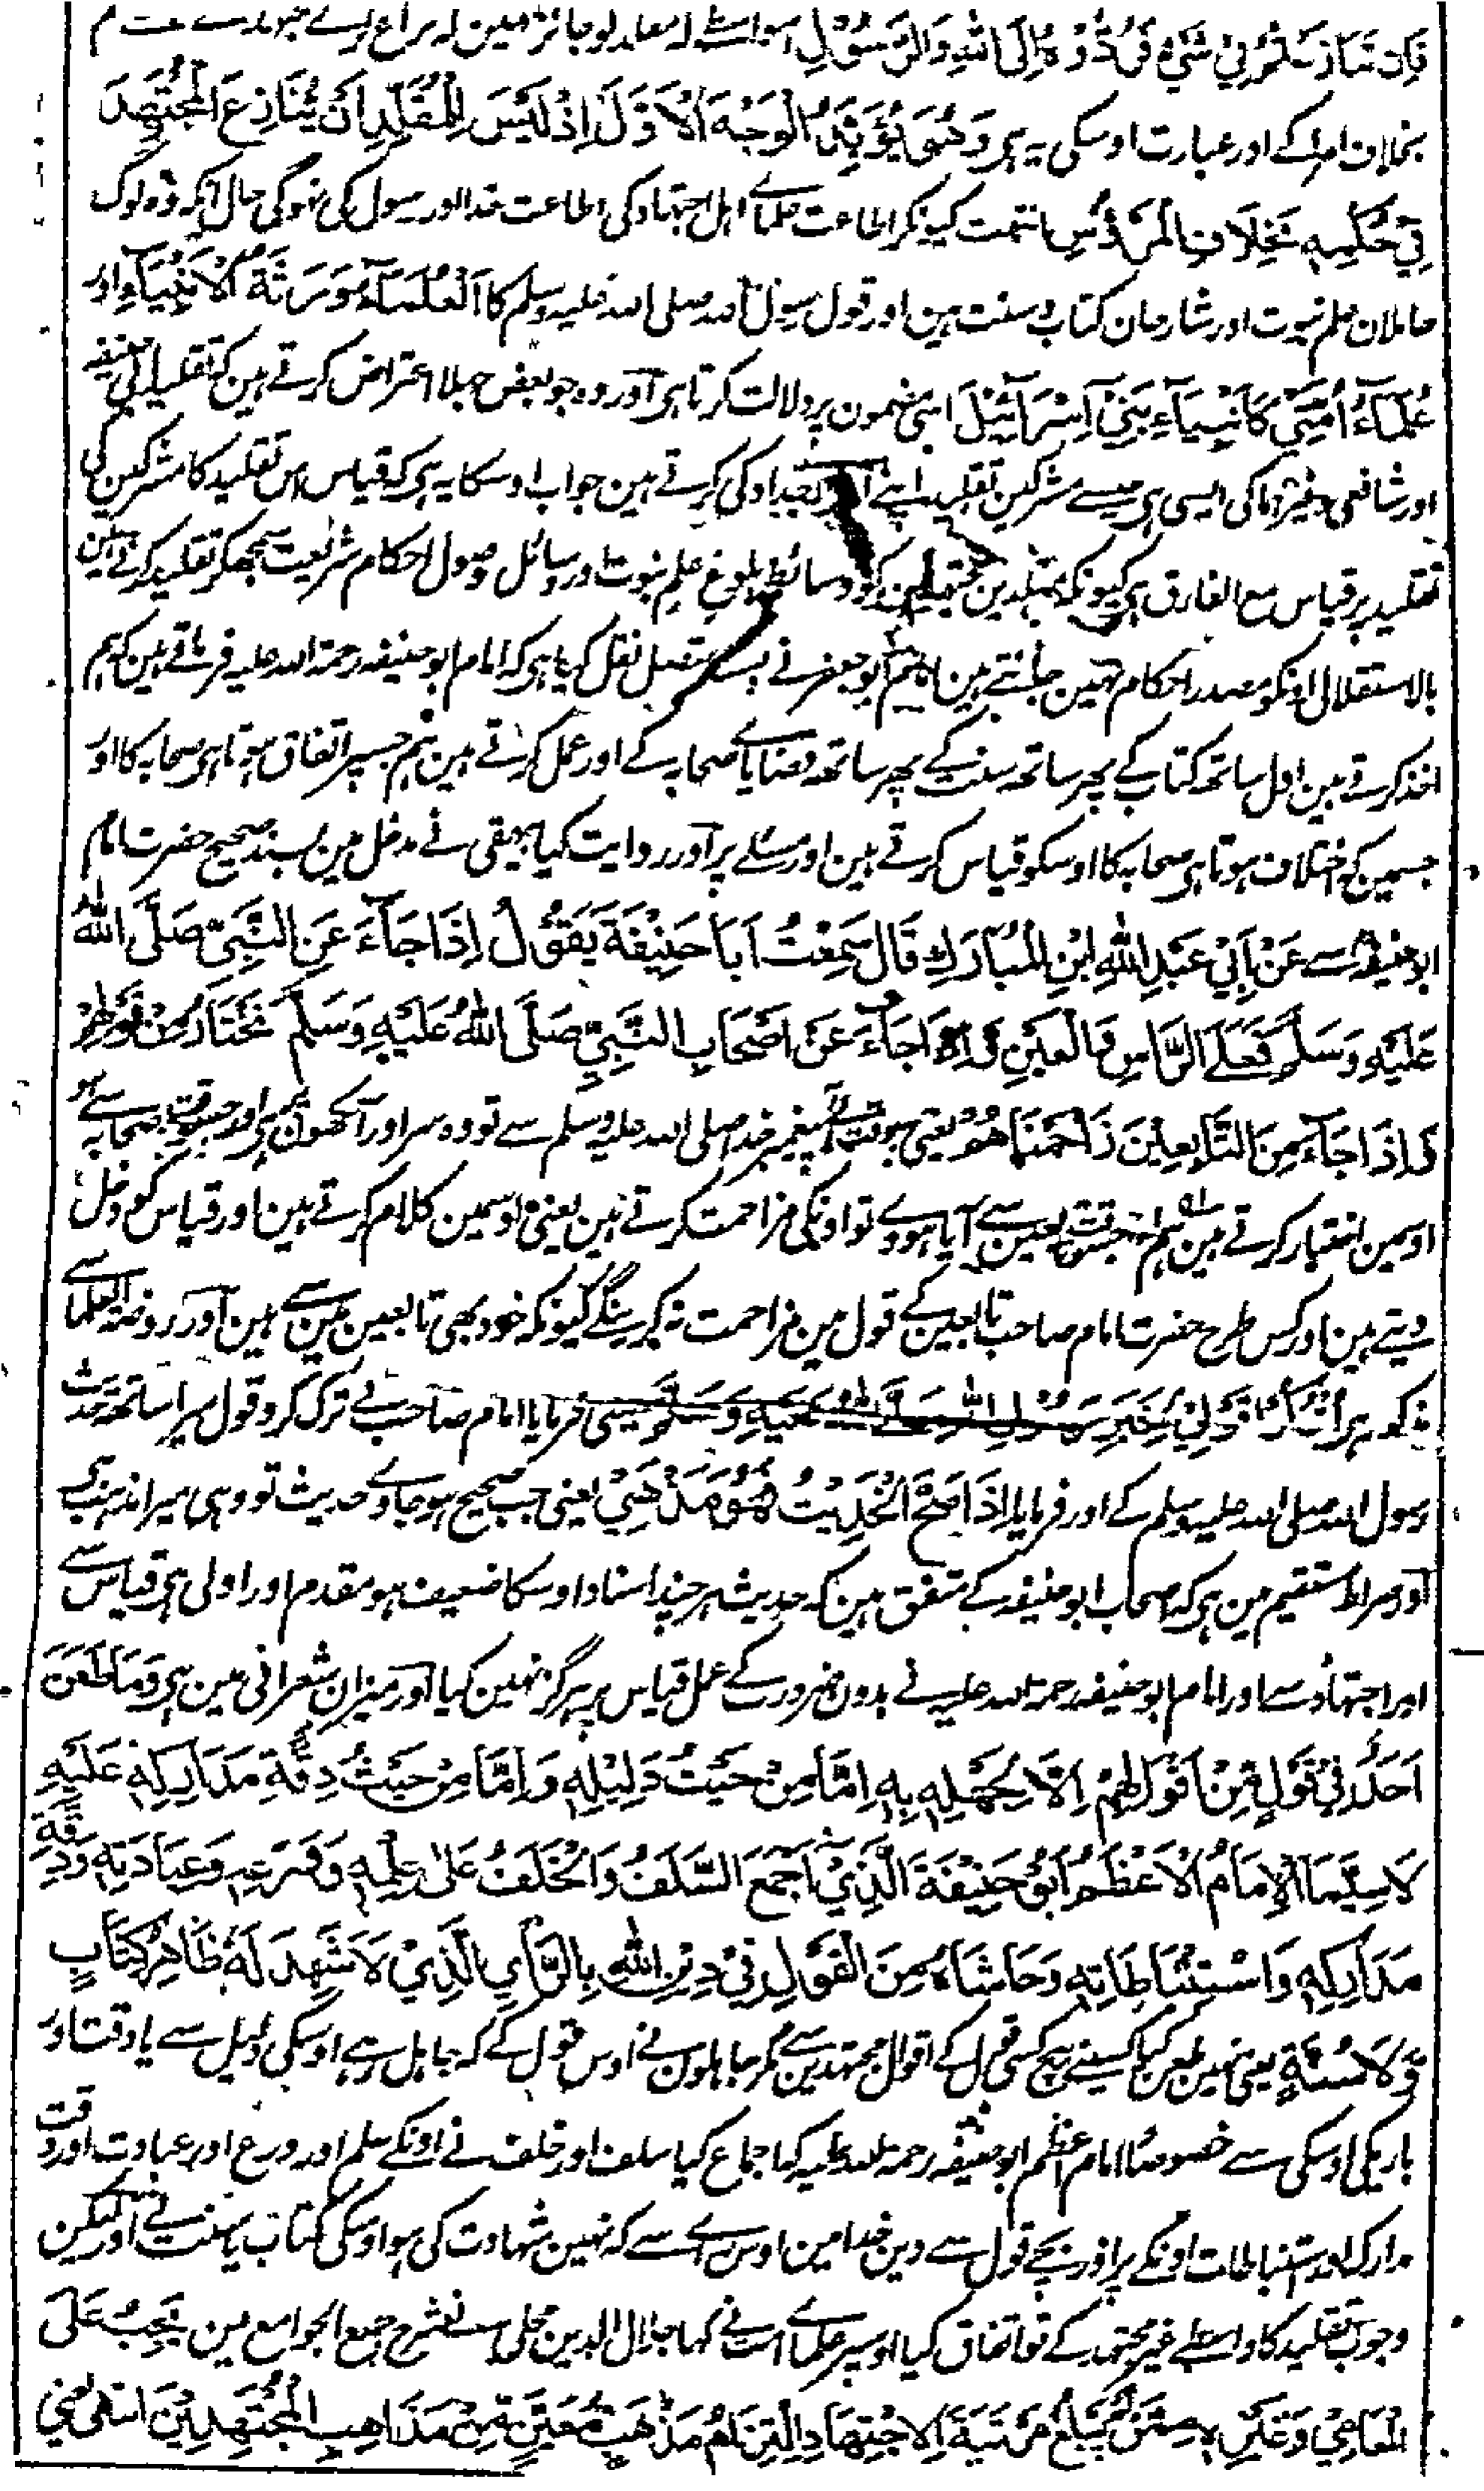 فَاِنْ تَنَازَعْتُمْ فِيْ شَيْءٍ فَرُدُّوْهُ اِلَى اللّٰهِ وَالرَّسُوْلِ اسواسطے کہ مقلد کو جائز نہین کہ نزاع کرے مجتہد سے
بخلاف امرا کے اور عبارت اوسکی یہ ہی وَهُوَ يُؤَيِّدُ الْوَجْهَ الْاَوَّلَ اِذْ لَيْسَ لِلْمُقَلِّدِ اَنْ يُنَازِعَ الْمُجْتَهِدَ
فِيْ حُكْمِهٖ بِخِلَافِ الْمَرْؤُسِ انتہت کیونکر اطاعت علماے اہل اجتہاد کی اطاعت خدا اور رسول کی نہوگی حال آنکہ وہ لوگ
حاملان علم نبوت اور شارحان کتاب و سنت ہین اور قول رسول اللہ صلی اللہ علیہ وسلم کا اَلْعُلَمَآءُ وَرَثَةُ الْاَنْبِيَآءِ اور
عُلَمَآءُ اُمَّتِيْ كَاَنْبِيَآءِ بَنِيْ اِسْرَآئِيْلَ اسی مضمون پر دلالت کرتا ہی اور وہ جو بعض جہلا اعتراض کرتے ہین کہ تقلید ابی حنیفہ
اور شافعی وغیرہما کی ایسی ہی جیسے مشرکین تقلید اپنے اجداد کی کرتے ہین جواب اوسکا یہ ہی کہ قیاس اس تقلید کا مشرکین کی
تقلید پر قیاس مع الفارق ہی کیونکہ مقلدین مجتہدین کو وسائط بلوغ علم نبوت اور وسائل وصول احکام شریعت سمجھکر تقلید کرتے ہین
بالاستقلال اونکو مصدر احکام نہین جانتے ہین ابو جعفر نے بسند متصل نقل کیا ہی کہ امام ابو حنیفہ رحمۃ اللہ علیہ فرماتے ہین کہ ہم
اخذ کرتے ہین اول ساتھ کتاب کے پھر ساتھ سنت کے پھر ساتھ قضایاے صحابہ کے اور عمل کرتے ہین ہم جسپر اتفاق ہوتا ہی صحابہ کا اور
جسمین کہ اختلاف ہوتا ہی صحابہ کا اوسکو قیاس کرتے ہین اور مسئلے پر اور روایت کیا بیہقی نے مدخل مین بسند صحیح حضرت امام
ابو حنیفہ سے عَنْ اَبِيْ عَبْدِ اللّٰهِ ابْنِ الْمُبَارَكِ قَالَ سَمِعْتُ اَبَا حَنِيْفَةَ يَقُوْلُ اِذَا جَآءَ عَنِ النَّبِيِّ صَلَّى اللّٰهُ
عَلَيْهِ وَسَلَّمَ فَعَلَى الرَّاسِ وَالْعَيْنِ وَاِذَا جَآءَ عَنْ اَصْحَابِ النَّبِيِّ صَلَّى اللّٰهُ عَلَيْهِ وَسَلَّمَ نَخْتَارُ مِنْ قَوْلِهِمْ
وَاِذَا جَآءَ مِنَ التَّابِعِيْنَ زَاحَمْنَاهُمْ یعنی جسوقت آوے پیغمبر خدا صلی اللہ علیہ وسلم سے تو وہ سر اور آنکھون پر ہی اور جسوقت صحابہ سے ہو
اوسمین اختیار کرتے ہین ہم اور جسوقت تابعین سے آیا ہووے تو اونکی مزاحمت کرتے ہین یعنی اوسمین کلام کرتے ہین اور قیاس کو دخل
دیتے ہین اور کس طرح حضرت امام صاحب تابعین کے قول مین مزاحمت نہ کرینگے کیونکہ خود بھی تابعین مین سے ہین اور روضۃ العلما سے
مذکور ہی اُتْرُكُوْا قَوْلِيْ بِخَبَرِ رَسُوْلِ اللّٰهِ صَلَّى اللّٰهُ عَلَيْهِ وَسَلَّمَ یعنی فرمایا امام صاحب نے ترک کرو قول میرا ساتھ حدیث
رسول اللہ صلی اللہ علیہ وسلم کے اور فرمایا اِذَا صَحَّ الْحَدِيْثُ فَهُوَ مَذْهَبِيْ یعنی جب صحیح ہو جاوے حدیث تو وہی میرا مذہب ہی
اور صراط مستقیم مین ہی کہ اصحاب ابو حنیفہ کے متفق ہین کہ حدیث ہر چند اسناد اوسکا ضعیف ہو مقدم اور اولی ہی قیاس سے
اور اجتہاد سے اور امام ابو حنیفہ رحمۃ اللہ علیہ نے بدون ضرورت کے عمل قیاس پر ہرگز نہین کیا اور میزان شعرانی مین ہی وَمَا طَعَنَ
اَحَدٌ فِيْ قَوْلٍ مِّنْ اَقْوَالِهِمْ اِلَّا لِجَهْلِهٖ بِهٖ اِمَّا مِنْ حَيْثُ دَلِيْلِهٖ وَاِمَّا مِنْ حَيْثُ دِقَّةِ مَدَارِكِهٖ عَلَيْهِ
لَا سِيَّمَا الْاِمَامُ الْاَعْظَمُ اَبُوْ حَنِيْفَةَ الَّذِيْ اَجْمَعَ السَّلَفُ وَالْخَلَفُ عَلٰى عِلْمِهٖ وَوَرَعِهٖ وَعِبَادَتِهٖ وَدِقَّةِ
مَدَارِكِهٖ وَاسْتِنْبَاطَاتِهٖ وَحَاشَاهُ مِنَ الْقَوْلِ فِيْ دِيْنِ اللّٰهِ بِالرَّأْيِ الَّذِيْ لَا شَهِدَ لَهٗ ظَاهِرُ كِتَابٍ
وَّلَا سُنَّةٍ یعنی نہین طعن کیا کسینے بیچ کسی قول کے اقوال مجتہدین سے مگر جاہلون نے اوس قول کے کہ جاہل رہے اوسکی دلیل سے یا دقت اور
باریکی اوسکی سے خصوصا امام اعظم ابو حنیفہ رحمۃ اللہ علیہ کہ اجماع کیا سلف اور خلف نے اونکے علم اور ورع اور عبادت اور دقت
مدارک اور استنباطات اونکے پر اور بچے قول سے دین خدا مین اوس راے سے کہ نہین شہادت کی ہو اوسکی کتاب یا سنت نے اور لیکن
وجوب تقلید کا واسطے غیر مجتہد کے تو اتفاق کیا اوسپر علماے امت نے کہا جلال الدین محلی نے شرح جمع الجوامع مین يَجِبُ عَلَى
الْعَامِيْ وَغَيْرِهٖ مِمَّنْ لَّمْ يَبْلُغْ مَرْتَبَةَ الْاِجْتِهَادِ اِلْتِزَامُ مَذْهَبٍ مُّعَيَّنٍ مِّنْ مَذَاهِبِ الْمُجْتَهِدِيْنَ انتہی یعنی